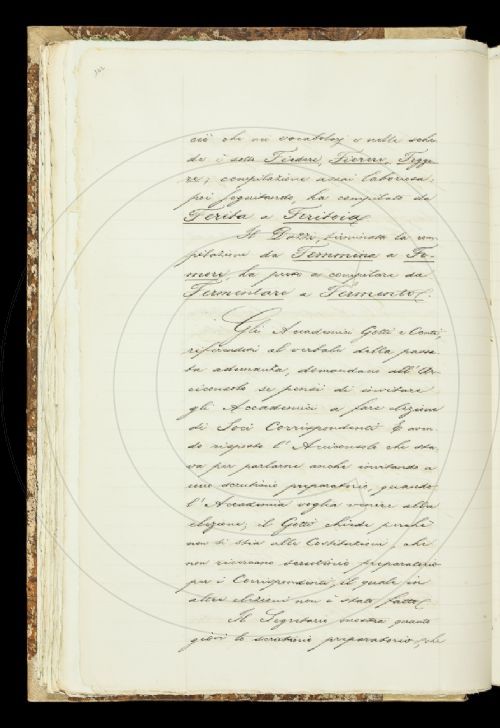 ciò che ne' vocabolarj e nelle sche
de è sotto Fiedere, Fierere, Fegge
re; compilazione assai laboriosa,
poi seguitando, ha compilato da
Ferita a Feritoia.
Il Dazzi, terminata la com
pilazione da Femmina a Fe-
more, ha preso a compilare da
Fermentare a Fermento.
Gli Accademici Gotti e Conti,
riferendosi al verbale della passa
ta adunanza, domandano all'Ar
ciconsolo se pensi di invitare
gli Accademici a fare elezione
di Soci Corrispondenti. E aven
do risposto l'Arciconsolo che sta
va per parlarne anche invitando a
uno scrutinio preparatorio, quando
l'Accademia voglia venire alla
elezione, il Gotti chiede perchè
non si stia alle Costituzioni, che
non ricercano scrutinio preparatorio
per i Corrispondenti, il quale in
altre elezioni non è stato fatto.
Il Segretario mostra quanto
giovi lo scrutinio preparatorio, che